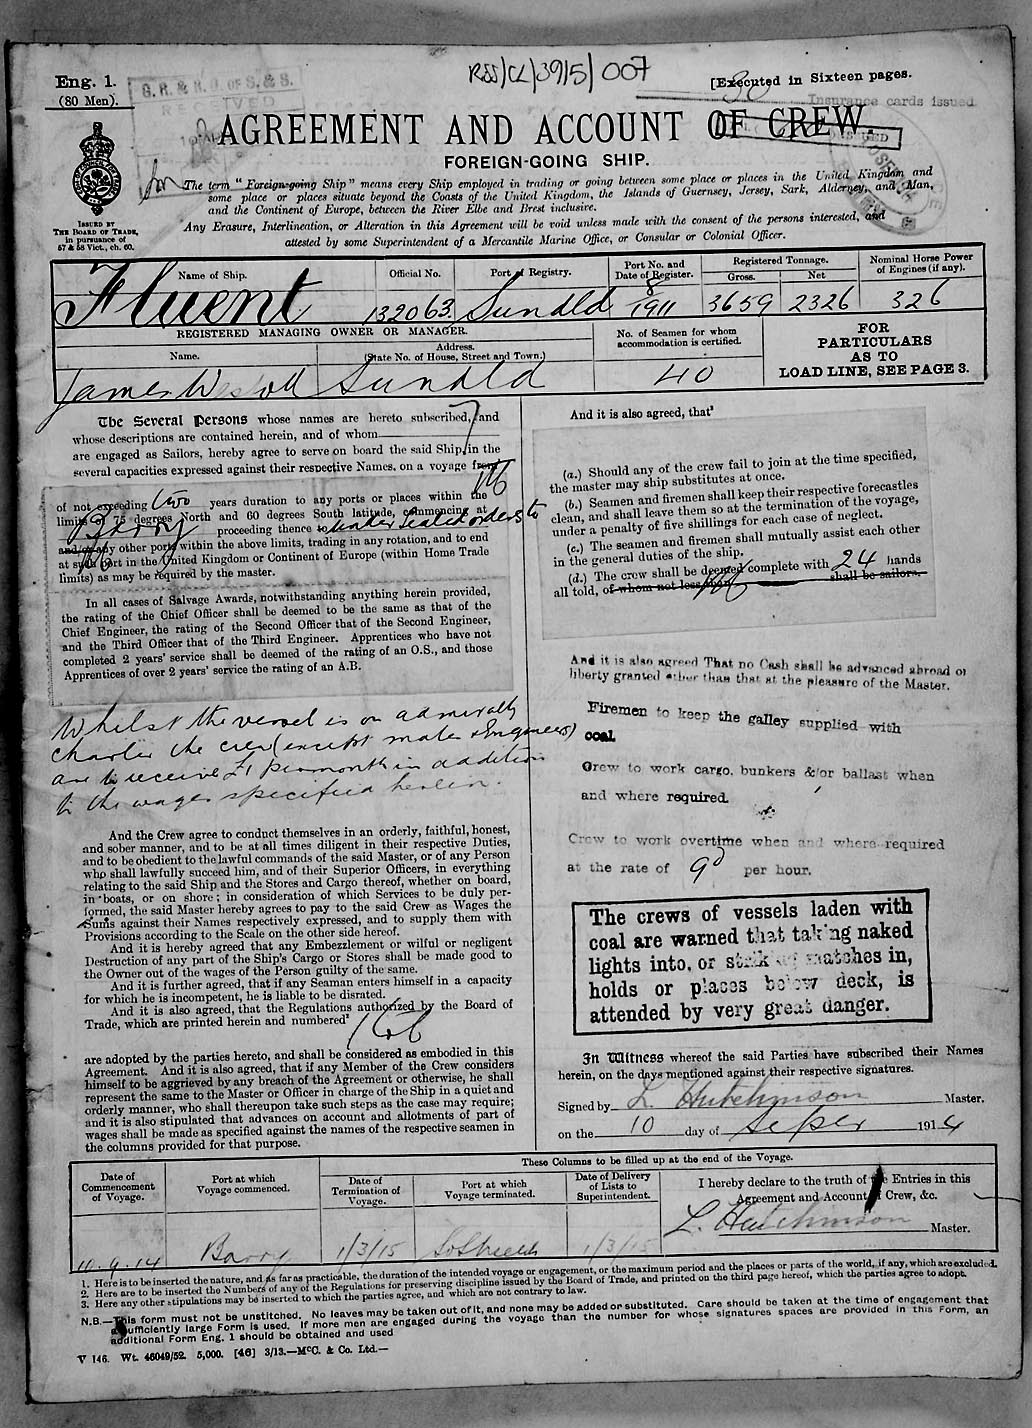 RSS/CL/39/5/007
Eng. 1.
(80 Men).
G. R. & R. O. OF S. & S.
RECEIVED
[Executed in Sixteen pages.
Insurance cards issued
AGREEMENT AND ACCOUNT OF CREW.
FOREIGN-GOING SHIP.
ISSUED BY
THE BOARD OF TRADE,
in pursuance of
57 & 58 Vict., ch. 60.
The term "Foreign-going Ship" means every Ship employed in trading or going between some place or places in the United Kingdom and
some place or places situate beyond the Coasts of the United Kingdom, the Islands of Guernsey, Jersey, Sark, Alderney, and Man,
and the Continent of Europe, between the River Elbe and Brest inclusive.
Any Erasure, Interlineation, or Alteration in this Agreement will be void unless made with the consent of the persons interested, and
attested by some Superintendent of a Mercantile Marine Office, or Consular or Colonial Officer.
Name of Ship. Official No. Port of Registry. Port No. and Date of Register. Registered Tonnage. Gross. Net Nominal Horse Power of Engines (if any).
Fluent 132063 Sundld 8/1911 3659 2326 326
REGISTERED MANAGING OWNER OR MANAGER.
Name. Address. (State No. of House, Street and Town.)
No. of Seamen for whom accommodation is certified.
FOR
PARTICULARS
AS TO
LOAD LINE, SEE PAGE 3.
James Westoll Sundld 40
The Several Persons whose names are hereto subscribed, and
whose descriptions are contained herein, and of whom
are engaged as Sailors, hereby agree to serve on board the said Ship, in the
several capacities expressed against their respective Names, on a voyage from
of not exceeding two years duration to any ports or places within the
limits of 75 degrees North and 60 degrees South latitude, commencing at
Barry proceeding thence to under sealed orders to
and/or any other ports within the above limits, trading in any rotation, and to end
at such port in the United Kingdom or Continent of Europe (within Home Trade
limits) as may be required by the master.
In all cases of Salvage Awards, notwithstanding anything herein provided,
the rating of the Chief Officer shall be deemed to be the same as that of the
Chief Engineer, the rating of the Second Officer that of the Second Engineer,
and the Third Officer that of the Third Engineer. Apprentices who have not
completed 2 years' service shall be deemed of the rating of an O.S., and those
Apprentices of over 2 years' service the rating of an A.B.
Whilst the vessel is on admiralty
charter the crew (except mates & Engineers)
are to receive £1 per month in addition
to the wages specified herein.
And the Crew agree to conduct themselves in an orderly, faithful, honest,
and sober manner, and to be at all times diligent in their respective Duties,
and to be obedient to the lawful commands of the said Master, or of any Person
who shall lawfully succeed him, and of their Superior Officers, in everything
relating to the said Ship and the Stores and Cargo thereof, whether on board,
in boats, or on shore; in consideration of which Services to be duly per-
formed, the said Master hereby agrees to pay to the said Crew as Wages the
Sums against their Names respectively expressed, and to supply them with
Provisions according to the Scale on the other side hereof.
And it is hereby agreed that any Embezzlement or wilful or negligent
Destruction of any part of the Ship's Cargo or Stores shall be made good to
the Owner out of the wages of the Person guilty of the same.
And it is further agreed, that if any Seaman enters himself in a capacity
for which he is incompetent, he is liable to be disrated.
And it is also agreed, that the Regulations authorized by the Board of
Trade, which are printed herein and numbered² 1 to 6
are adopted by the parties hereto, and shall be considered as embodied in this
Agreement. And it is also agreed, that if any Member of the Crew considers
himself to be aggrieved by any breach of the Agreement or otherwise, he shall
represent the same to the Master or Officer in charge of the Ship in a quiet and
orderly manner, who shall thereupon take such steps as the case may require;
and it is also stipulated that advances on account and allotments of part of
wages shall be made as specified against the names of the respective seamen in
the columns provided for that purpose.
And it is also agreed, that³
(a.) Should any of the crew fail to join at the time specified,
the master may ship substitutes at once.
(b.) Seamen and firemen shall keep their respective forecastles
clean, and shall leave them so at the termination of the voyage,
under a penalty of five shillings for each case of neglect.
(c.) The seamen and firemen shall mutually assist each other
in the general duties of the ship.
(d.) The crew shall be deemed complete with 24 hands
all told, of whom not less than shall be sailors.
And it is also agreed That no Cash shall be advanced abroad or
liberty granted other than that at the pleasure of the Master.
Firemen to keep the galley supplied with
coal.
Crew to work cargo, bunkers &/or ballast when
and where required.
Crew to work overtime when and where required
at the rate of 9d per hour.
The crews of vessels laden with
coal are warned that taking naked
lights into, or striking matches in,
holds or places below deck, is
attended by very great danger.
In Witness whereof the said Parties have subscribed their Names
herein, on the days mentioned against their respective signatures.
Signed by L. Hutchinson Master.
on the 10 day of Septer 1914
These Columns to be filled up at the end of the Voyage.
Date of Commencement of Voyage. Port at which Voyage commenced. Date of Termination of Voyage. Port at which Voyage terminated. Date of Delivery of Lists to Superintendent.
I hereby declare to the truth of the Entries in this
Agreement and Account of Crew, &c.
L. Hutchinson Master.
10.9.14 Barry 1/3/15 So Shields 1/3/15
1. Here is to be inserted the nature, and as far as practicable, the duration of the intended voyage or engagement, or the maximum period and the places or parts of the world, if any, which are excluded.
2. Here are to be inserted the Numbers of any of the Regulations for preserving discipline issued by the Board of Trade, and printed on the third page hereof, which the parties agree to adopt.
3. Here any other stipulations may be inserted to which the parties agree, and which are not contrary to law.
N.B.—This form must not be unstitched. No leaves may be taken out of it, and none may be added or substituted. Care should be taken at the time of engagement that
a sufficiently large Form is used. If more men are engaged during the voyage than the number for whose signatures spaces are provided in this Form, an
additional Form Eng. 1 should be obtained and used
V 146. Wt. 46049/52. 5,000. [46] 3/13.—McC. & Co. Ltd.—